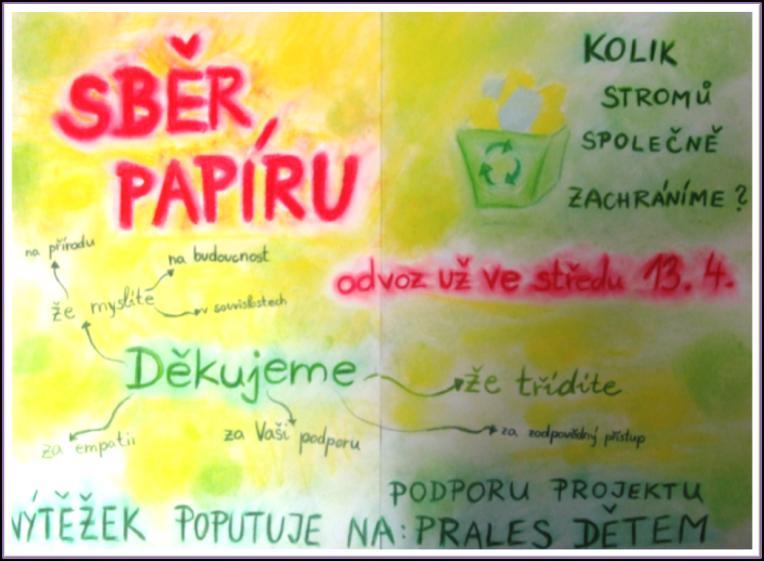 SBĚR
PAPÍRU
KOLIK
STROMŮ
SPOLEČNĚ
ZACHRÁNÍME?
odvoz už ve středu 13. 4.
na přírodu
na budoucnost
že myslíte
v souvislostech
Děkujeme
že třídíte
za empatii
za Vaši podporu
za zodpovědný přístup
PODPORU PROJEKTU
VÝTĚŽEK POPUTUJE NA: PRALES DĚTEM